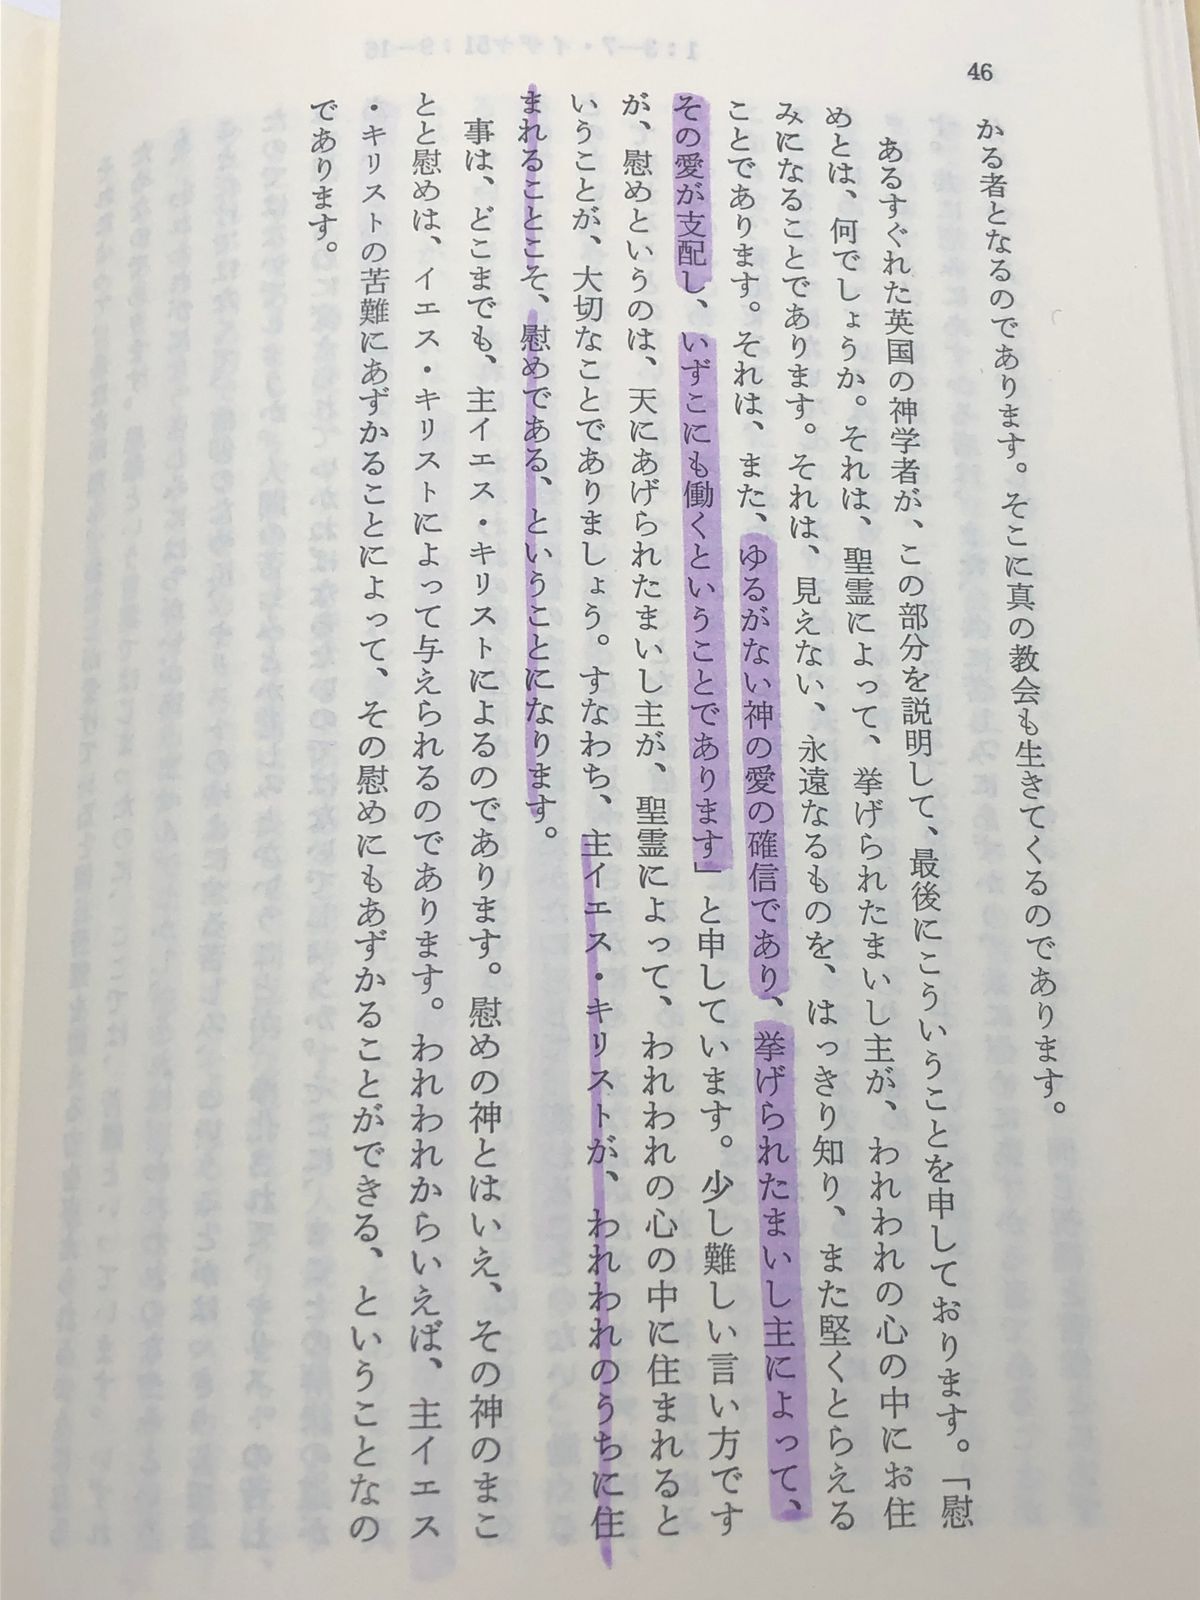 46
かる者となるのであります。そこに真の教会も生きてくるのであります。
あるすぐれた英国の神学者が、この部分を説明して、最後にこういうことを申しております。「慰
めとは、何でしょうか。それは、聖霊によって、挙げられたまいし主が、われわれの心の中にお住
みになることであります。それは、見えない、永遠なるものを、はっきり知り、また堅くとらえる
ことであります。それは、また、ゆるがない神の愛の確信であり、挙げられたまいし主によって、
その愛が支配し、いずこにも働くということであります」と申しています。少し難しい言い方です
が、慰めというのは、天にあげられたまいし主が、聖霊によって、われわれの心の中に住まれると
いうことが、大切なことでありましょう。すなわち、主イエス・キリストが、われわれのうちに住
まれることこそ、慰めである、ということになります。
事は、どこまでも、主イエス・キリストによるのであります。慰めの神とはいえ、その神のまこ
とと慰めは、イエス・キリストによって与えられるのであります。われわれからいえば、主イエス
・キリストの苦難にあずかることによって、その慰めにもあずかることができる、ということなの
であります。